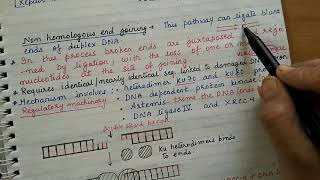 Repair
Non homologous end joining → This pathway can ligate blunt
ends of duplex DNA.
In this process broken ends are juxtaposed
med by ligation, with the loss of one or mo
nucleotides at the site of joining
Requires identical / nearly identical seq linked to damaged DNA
Mechanism involves :- heterodimer KU70 and KU80 pro
Regulatory machinery DNA dependent protein kinase
Artemis trims the DNA ends
DNA ligase IV and XRCC4
Double strand break
Ku heterodimers binds
to ends.